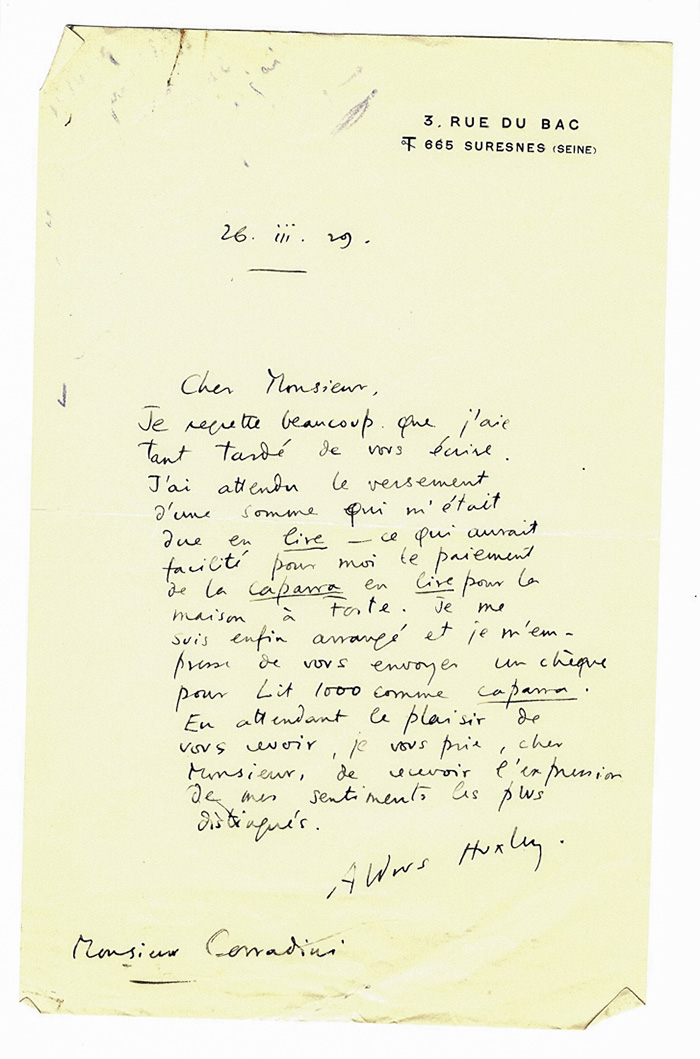 3. RUE DU BAC
T 665 SURESNES (SEINE)
26. iii. 29.
Cher Monsieur,
Je regrette beaucoup que j'aie
tant tardé de vous écrire.
J'ai attendu le versement
d'une somme qui m'était
due en lire — ce qui aurait
facilité pour moi le paiement
de la caparra en lire pour la
maison à Forte. Je me
suis enfin arrangé et je m'em-
presse de vous envoyer un chèque
pour Lit 1000 comme caparra.
En attendant le plaisir de
vous revoir, je vous prie, cher
Monsieur, de recevoir l'expression
de mes sentiments les plus
distingués.
Aldous Huxley.
Monsieur Corradini